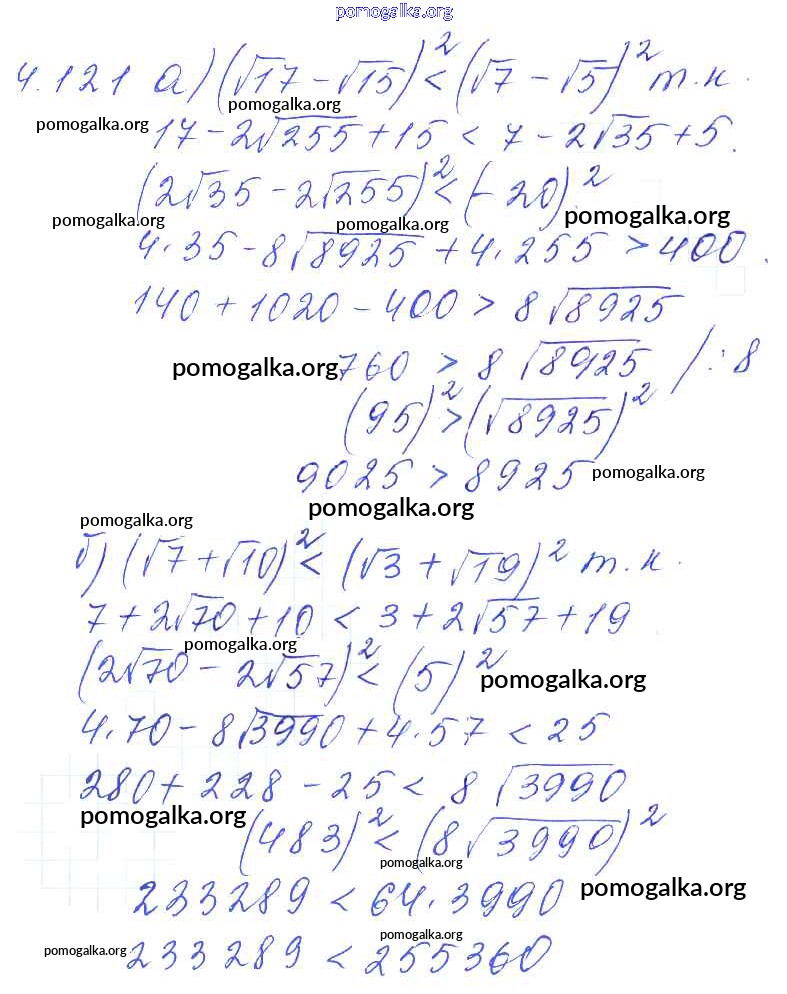 pomogalka.org
4.121 а) (√17 - √15)² < (√7 - √5)² т.к.
pomogalka.org
pomogalka.org
17 - 2√255 + 15 < 7 - 2√35 + 5.
(2√35 - 2√255)² < (- 20)²
pomogalka.org pomogalka.org pomogalka.org
4.35 - 8√8925 + 4.255 > 400.
140 + 1020 - 400 > 8√8925
pomogalka.org 760 > 8√8925 /:8
(95)² > (√8925)²
9025 > 8925 pomogalka.org
pomogalka.org
pomogalka.org
б) (√7 + √10)² < (√3 + √19)² т.к.
7 + 2√70 + 10 < 3 + 2√57 + 19
pomogalka.org
(2√70 - 2√57)² < (5)² pomogalka.org
4.70 - 8√3990 + 4.57 < 25
280 + 228 - 25 < 8√3990
pomogalka.org
(483)² < (8√3990)²
pomogalka.org
233289 < 64.3990 pomogalka.org
pomogalka.org
pomogalka.org 233289 < 255360